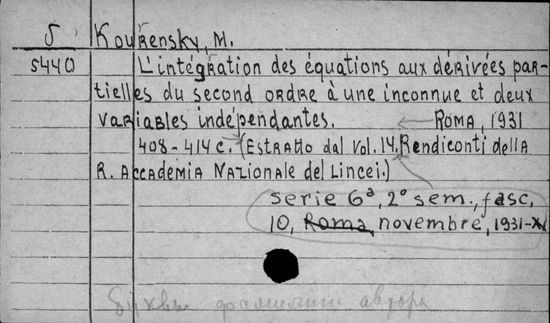 5 Kourensky, M.
5440 L'intégration des équations aux dérivées par-
tielles du second ordre à une inconnue et deux
variables indépendantes. Roma, 1931
408-414 c. (Estratto dal Vol. 14, Rendiconti della
R. Accademia Nazionale dei Lincei.)
serie 6ª, 2º sem., fasc,
10, Roma, novembre, 1931-X
Буквы фамилии автора